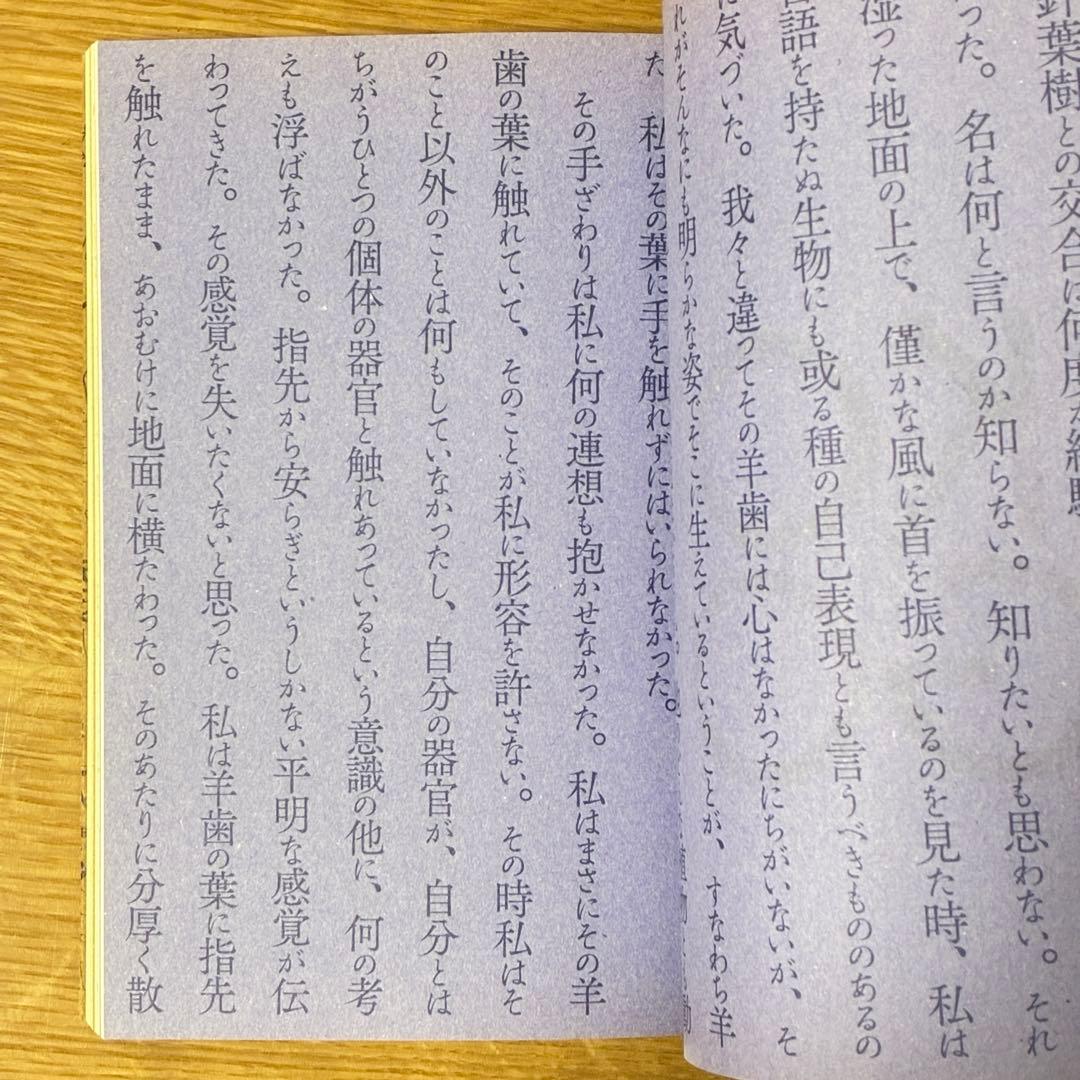 針葉樹との交合は何度か経験
った。名は何と言うのか知らない。知りたいとも思わない。それ
湿った地面の上で、僅かな風に首を振っているのを見た時、私は
言語を持たぬ生物にも或る種の自己表現とも言うべきもののあるの
に気づいた。我々と違ってその羊歯には心はなかったにちがいないが、そ
れがそんなにも明らかな姿でそこに生えているということが、すなわち羊
た。私はその葉に手を触れずにはいられなかった。
その手ざわりは私に何の連想も抱かせなかった。私はまさにその羊
歯の葉に触れていて、そのことが私に形容を許さない。その時私はそ
のこと以外のことは何もしていなかったし、自分の器官が、自分とは
ちがうひとつの個体の器官と触れあっているという意識の他に、何の考
えも浮ばなかった。指先から安らぎというしかない平明な感覚が伝
わってきた。その感覚を失いたくないと思った。私は羊歯の葉に指先
を触れたまま、あおむけに地面に横たわった。そのあたりに分厚く散